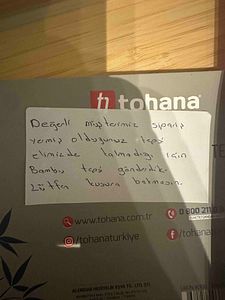 tohana
Değerli müşterimiz sipariş
vermiş olduğunuz tepsi
elimizde kalmadığı için
Bambu tepsi gönderdik.
Lütfen kusura bakmayın.
www.tohana.com.tr
0 800 211
/tohanaturkiye
/tohana